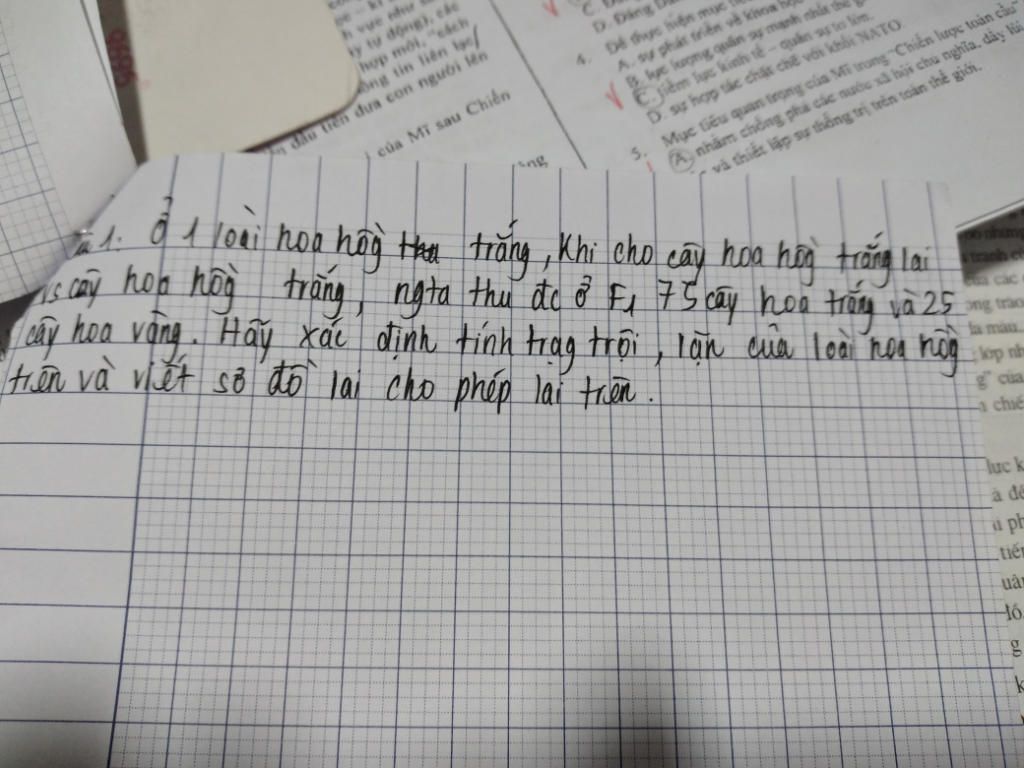 vực như
tự động), các
hợp mới, "cách
ông tin liên lạc
đầu tiên đưa con người lên
của Mĩ sau Chiến
D. Đáng
4. Để thực hiện mục
A. sự phát triển về khoa học
B. lực lượng quân sự mạnh nhất thế
C. tiềm lực kinh tế – quân sự to lớn.
D. sự hợp tác chặt chẽ với khối NATO.
5. Mục tiêu quan trọng của Mĩ trong "Chiến lược toàn cầu"
A. nhằm chống phá các nước xã hội chủ nghĩa, đẩy lùi
và thiết lập sự thống trị trên toàn thế giới.
1. Ở 1 loài hoa hồg trắng, khi cho cây hoa hồg trắng lai
vs cây hoa hồg trắng, ngta thu đc ở F1 75 cây hoa trắng và 25
cây hoa vàng. Hãy xác định tính trạg trội, lặn của loài hoa hồg
trên và viết sơ đồ lai cho phép lai trên.
của các
ong trào
lớp nh
g" của
a chiế
lực k
à để
ủ ph
tiến
g
k